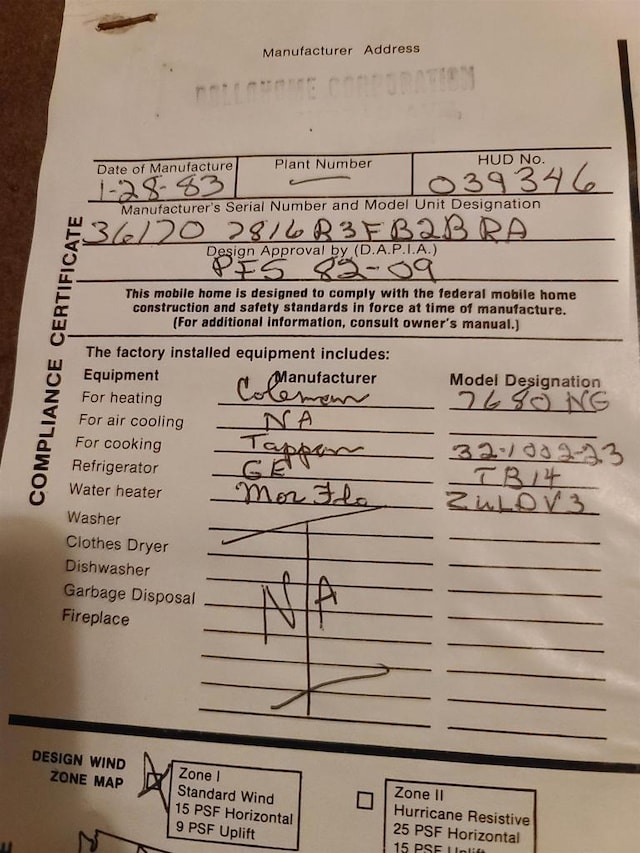 Manufacturer Address
CORPORATION
Date of Manufacture Plant Number HUD No.
1-28-83 — 039346
Manufacturer's Serial Number and Model Unit Designation
36170 7816 R3FB2BRA
Design Approval by (D.A.P.I.A.)
PFS 82-09
This mobile home is designed to comply with the federal mobile home
construction and safety standards in force at time of manufacture.
(For additional information, consult owner's manual.)
COMPLIANCE CERTIFICATE
The factory installed equipment includes:
Equipment Manufacturer Model Designation
For heating Coleman 7680 NG
For air cooling NA
For cooking Tappan 32-1002-23
Refrigerator GE TB14
Water heater Mor Flo
Washer
Clothes Dryer
Dishwasher
Garbage Disposal N/A
Fireplace
DESIGN WIND
ZONE MAP
Zone I
Standard Wind
15 PSF Horizontal
9 PSF Uplift
Zone II
Hurricane Resistive
25 PSF Horizontal
15 PSF Uplift